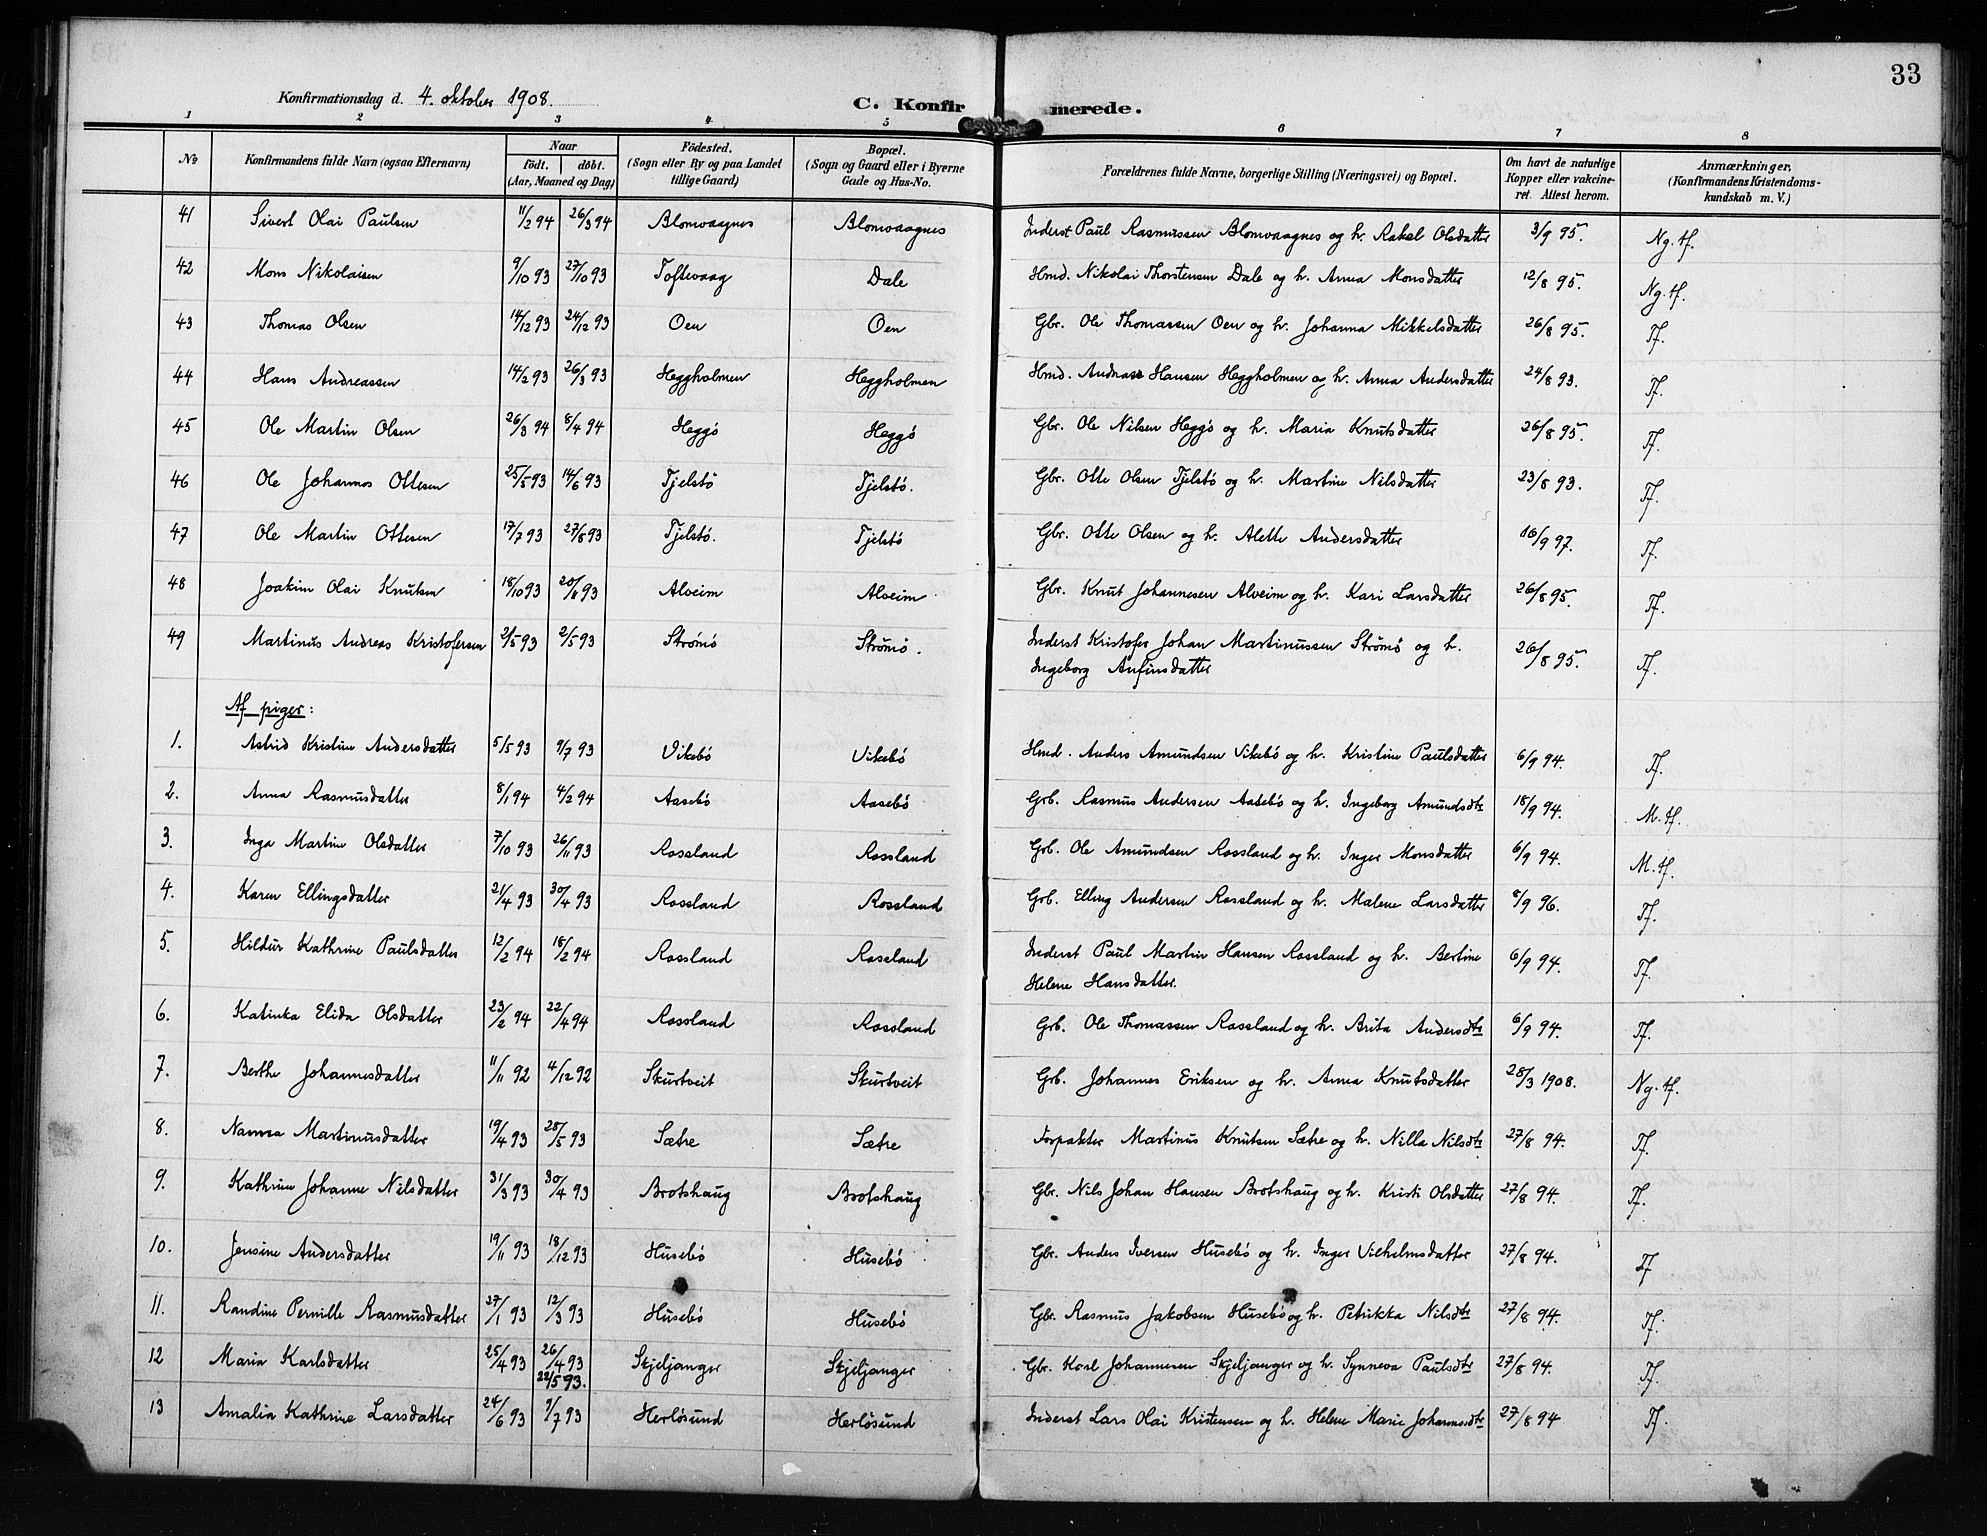 33
Konfirmationsdag d. 4. oktober 1908.
C. Konfirmerede.
1 2 3 4 5 6 7 8
No
Konfirmandens fulde Navn (ogsaa Efternavn)
Naar
födt. döbt.
(Aar, Maaned og Dag)
Födested.
(Sogn eller By og paa Landet
tillige Gaard)
Bopæl.
(Sogn og Gaard eller i Byerne
Gade og Hus-No.
Forældrenes fulde Navne, borgerlige Stilling (Næringsvei) og Bopæl.
Om havt de naturlige
Kopper eller vakcine-
ret. Attest herom.
Anmærkninger,
(Konfirmandens Kristendoms-
kundskab m. V.)
41 Sivert Olai Paulsen 11/2 94 26/3 94 Blomvaagnes Blomvaagnes Inderst Paul Rasmussen Blomvaagnes og h. Rakel Olsdatter 3/9 95. Ng. tf.
42 Mons Nikolaisen 9/10 93 27/10 93 Toftevaag Dale Hmd. Nikolai Thorstensen Dale og h. Anna Monsdatter 12/8 95. Ng. tf.
43 Thomas Olsen 14/12 93 24/12 93 Oen Oen Gbr. Ole Thomassen Oen og h. Johanna Mikkelsdatter 26/8 95. Tf.
44 Hans Andreassen 14/2 93 26/3 93 Heggholmen Heggholmen Hmd. Andreas Hansen Heggholmen og h. Anna Andersdatter 24/8 93. Tf.
45 Ole Martin Olsen 26/3 94 8/4 94 Heggö Heggö Gbr. Ole Nilsen Heggö og h. Maria Knutsdatter 26/8 95. Tf.
46 Ole Johannes Ottesen 25/5 93 14/6 93 Tjelstö Tjelstö. Gbr. Otte Olsen Tjelstö og h. Martine Nilsdatter 23/8 93. Tf.
47 Ole Martin Ottesen 17/7 93 27/8 93 Tjelstö. Tjelstö Gbr. Otte Olsen og h. Alette Andersdatter 16/9 97. Tf.
48 Joakim Olai Knutsen 18/10 93 20/11 93 Alveim Alveim Gbr. Knut Johannesen Alveim og h. Kari Larsdatter 26/8 95. Tf.
49 Martinus Andreas Kristofersen 2/5 93 2/5 93 Strömö Strömö. Inderst Kristofer Johan Martinussen Strömö og h.
Ingeborg Anfinsdatter 26/8 95. Tf.
Af piger:
1. Astrid Kristine Andersdatter 5/5 93 9/7 93 Vikebö Vikebö Hmd. Anders Amundsen Vikebö og h. Kristine Paulsdatter 6/9 94. Tf.
2. Anna Rasmusdatter 8/1 94 4/2 94 Aasebö Aasebö Grb. Rasmus Andersen Aasebö og h. Ingeborg Amundsdtr 18/9 94. M. tf.
3. Inga Martine Olsdatter 7/10 93 26/11 93 Rossland Rossland Grb. Ole Amundsen Rossland og h. Inger Monsdatter 6/9 94. M. tf.
4. Karen Ellingsdatter 21/4 93 30/4 93 Rossland Rossland Grb. Elling Andersen Rossland og h. Malene Larsdatter 8/9 96. Tf.
5. Hildur Kathrine Paulsdatter 12/2 94 18/2 94 Rossland Rossland Inderst Paul Martin Hansen Rossland og h. Bertine
Helene Hansdatter. 6/9 94. Tf.
6. Katinka Elida Olsdatter 23/2 94 22/4 94 Rossland Rossland Grb. Ole Thomassen Rossland og h. Brita Andersdtr 6/9 94. Tf.
7. Berthe Johannesdatter 11/11 92 4/12 92 Skurtveit Skurtveit Grb. Johannes Eriksen og h. Anna Knutsdatter 28/3 1908. Ng. tf.
8. Nanna Martinusdatter 19/4 93 28/5 93 Sætre Sætre Forpakter Martinus Knutsen Sætre og h. Nilla Nilsdtr 27/8 94. Tf.
9. Kathrine Johanne Nilsdatter 31/3 93 30/4 93 Brotshaug Brotshaug Gbr. Nils Johan Hansen Brotshaug og h. Kristi Olsdatter 27/8 94. Tf.
10. Jensine Andersdatter 19/11 93 18/12 93 Husebö Husebö Gbr. Anders Iversen Husebö og h. Inger Vilhelmsdatter 27/8 94. Tf
11. Randine Pernille Rasmusdatter 27/1 93 12/3 93 Husebö Husebö Gbr. Rasmus Jakobsen Husebö og h. Petrikka Nilsdtr 27/8 94. Tf.
12 Maria Karlsdatter 25/4 93 26/4 93 22/5 93. Skjeljanger Skjeljanger Gbr. Karl Johannesen Skjeljanger og h. Synneva Paulsdtr 27/8 94. Tf.
13 Amalia Kathrine Larsdatter 24/6 93 9/7 93 Herlösund Herlösund Inderst Lars Olai Kristensen og h. Helene Marie Johannesdtr 27/8 94 Tf.